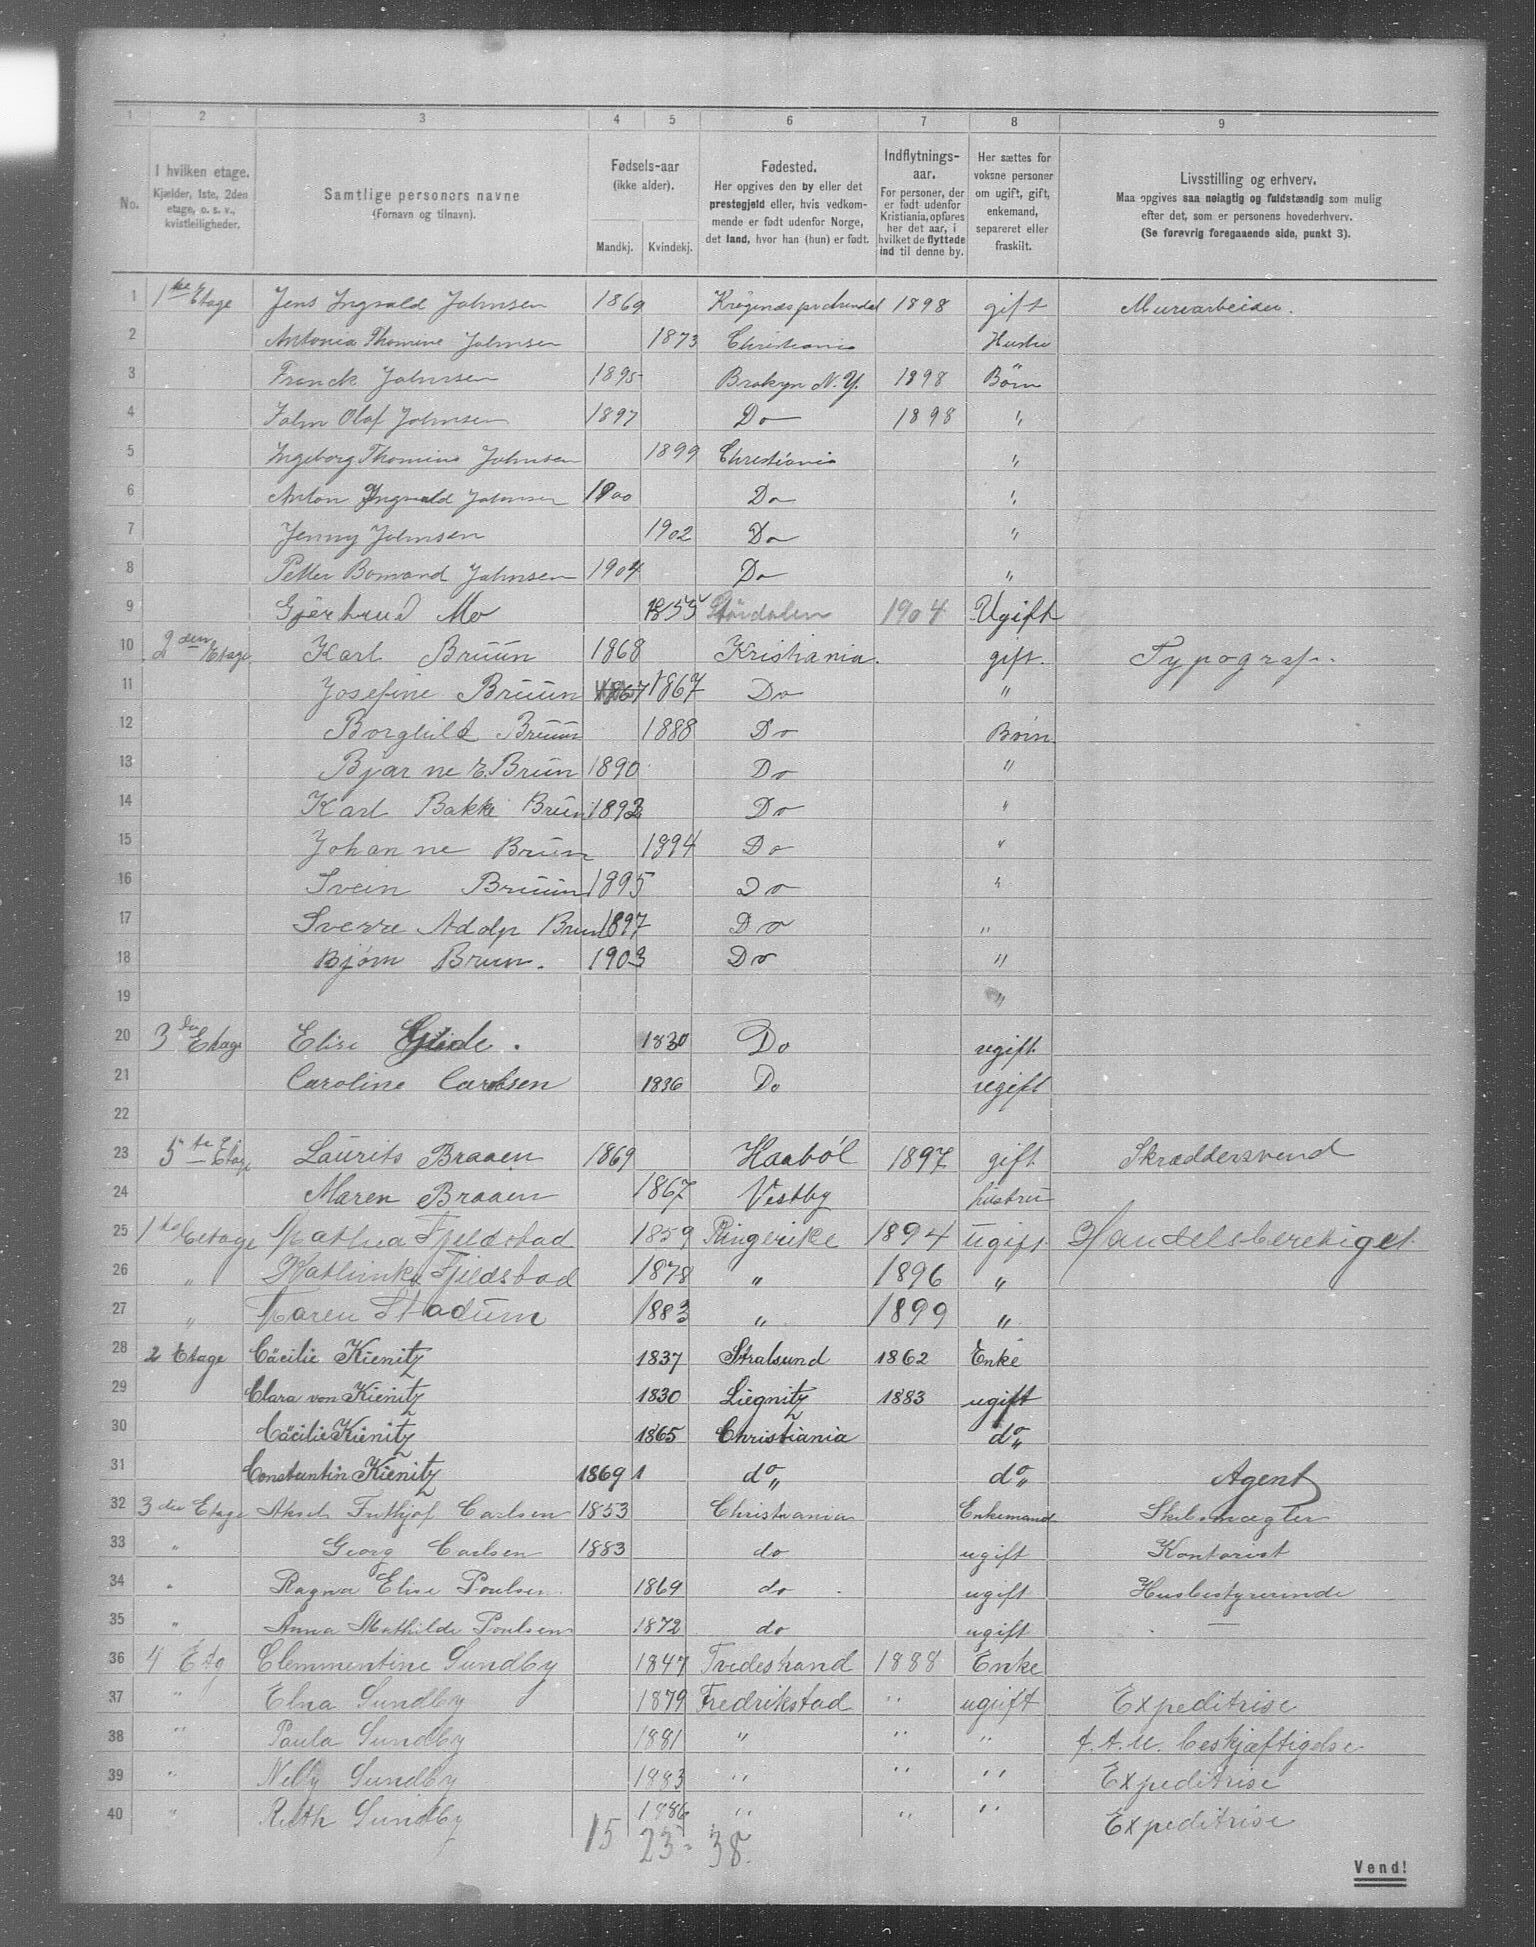 1 2 3 4 5 6 7 8 9
No. I hvilken etage. Kjælder, 1ste, 2den etage, o. s. v., kvistleiligheder. Samtlige personers navne (Fornavn og tilnavn). Fødsels-aar (ikke alder). Mandkj. Kvindekj. Fødested. Her opgives den by eller det prestegjeld eller, hvis vedkommende er født udenfor Norge, det land, hvor han (hun) er født. Indflytnings-aar. For personer, der er født udenfor Kristiania, opføres her det aar, i hvilket de flyttede ind til denne by. Her sættes for voksne personer om ugift, gift, enkemand, separeret eller fraskilt. Livsstilling og erhverv. Maa opgives saa nøiagtig og fuldstændig som mulig efter det, som er personens hovederhverv. (Se forøvrig foregaaende side, punkt 3).
1 1ste Etage Jens Ingvald Johnsen 1869 1898 gift Murearbeider.
2 Antonia Thomine Johnsen 1873 Christiania Hustru
3 Franck Johnsen 1895 Brokyn N.Y. 1898 Børn
4 John Olaf Johnsen 1897 Do 1898 "
5 Ingeborg Thomine Johnsen 1899 Christiania "
6 Anton Ingvald Johnsen 1900 Do "
7 Jenny Johnsen 1902 Do "
8 Petter Johnsen 1904 Do "
9 Gjertrud Mo 1855 Størdalen 1904 Ugift
10 2den Etage Karl Bruun 1868 Kristiania. gift. Typograf.
11 Josefine Bruun 1867 1867 Do "
12 Borghild Bruun 1888 Do Børn
13 Bjarne E. Brun 1890 Do "
14 Karl Bakke Brun 1892 Do "
15 Johanne Brun 1894 Do "
16 Svein Bruun 1895 Do "
17 Sverre Adolp Brun 1897 Do "
18 Bjørn Bruun. 1903 Do "
19 "
20 3die Etage Elise Gude. 1830 Do ugift
21 Caroline Carlsen 1836 Do ugift
22
23 5te Etage Laurits Braaen 1869 Haabøl 1897 gift Skræddersvend
24 Maren Braaen 1867 Vestby hustru
25 1ste Etage Mathea Fjeldstad 1859 Ringerike 1894 ugift Handelsberetiget
26 " Kathinka Fjeldstad 1878 " 1896 "
27 " Maren Stadum 1883 " 1899 "
28 2 Etage Cäcilie Kienitz 1837 Stralsund 1862 Enke
29 Clara von Kienitz 1830 Liegnitz 1883 ugift
30 Cäcilie Kienitz 1865 Christiania do "
31 Constantin Kienitz 1869 1 do " do " Agent
32 3die Etage Aksel Frithjof Carlsen 1853 Christiania Enkemand Skibsmægler
33 " Georg Carlsen 1883 do ugift Kontorist
34 " Ragna Elise Poulsen 1869 do ugift Husbestyrerinde
35 " Anna Mathilde Poulsen 1872 do ugift —
36 4 Etg Clemmentine Sundby 1847 Tvedestrand 1888 Enke
37 " Elna Sundby 1879 Fredrikstad " ugift Expeditrise
38 " Paula Sundby 1881 " " " f. A. U. beskjæftigelse
39 " Nelly Sundby 1883 " " " Expeditrise
40 " Ruth Sundby 1886 " " " Expeditrise
15 23 = 38.
Vend!